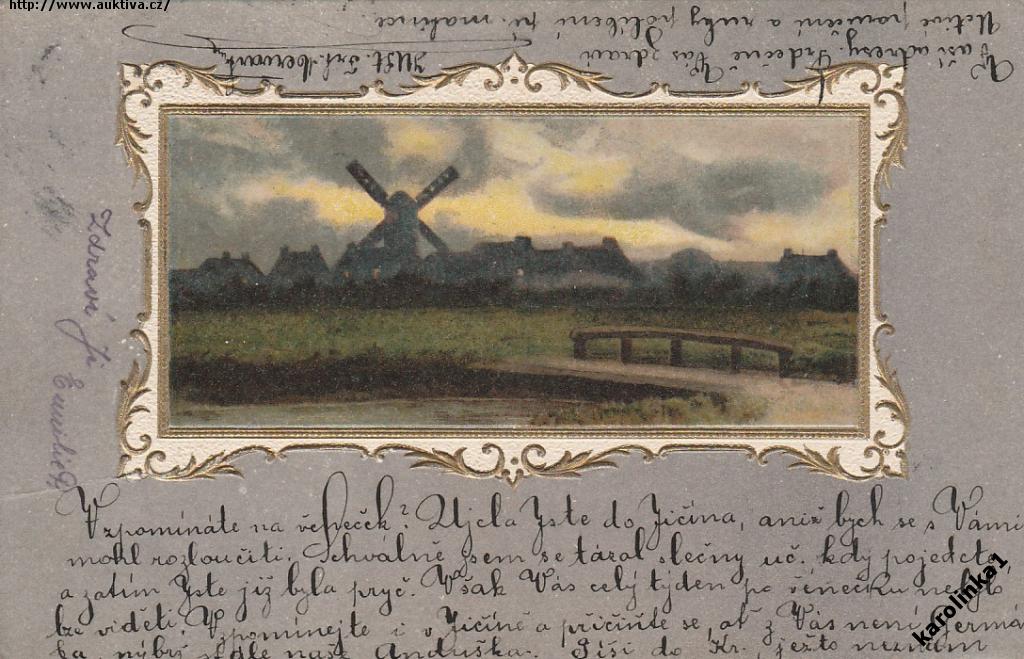 http://www.auktiva.cz/
Vzpomínáte na věneček? Ujela Jste do Jičína, aniž bych se s Vámi
mohl rozloučiti. Schválně jsem se tázal slečny uč. kdy pojedete
a zatím Jste již byla pryč. Však Vás celý týden po věnečku nebylo
lze viděti. Vzpomínejte i v Jičíně a přičiňte se, ať z Vás není Germá
ka, nýbrž stále naše Anduška. Píši do Kr., ježto neznám
Vaší adresy. Srdečně Vás zdraví
Uctivé poručení a ruky políbení sl. matince.
Zdraví Ji
karolinka1